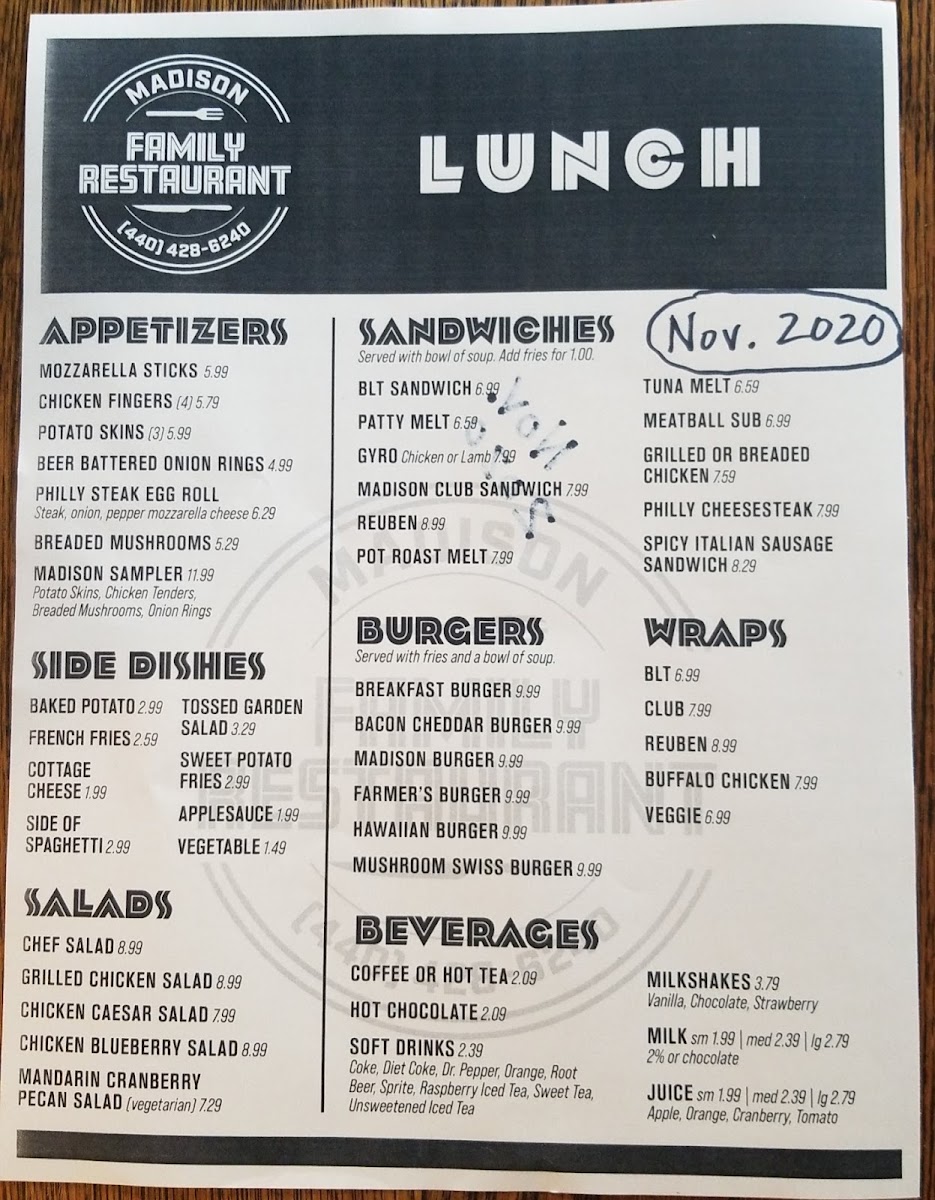 MADISON
FAMILY
RESTAURANT
(440) 428-6240
LUNCH
APPETIZERS
MOZZARELLA STICKS 5.99
CHICKEN FINGERS (4) 5.79
POTATO SKINS (3) 5.99
BEER BATTERED ONION RINGS 4.99
PHILLY STEAK EGG ROLL
Steak, onion, pepper mozzarella cheese 6.29
BREADED MUSHROOMS 5.29
MADISON SAMPLER 11.99
Potato Skins, Chicken Tenders,
Breaded Mushrooms, Onion Rings
SIDE DISHES
BAKED POTATO 2.99
FRENCH FRIES 2.59
COTTAGE
CHEESE 1.99
SIDE OF
SPAGHETTI 2.99
TOSSED GARDEN
SALAD 3.29
SWEET POTATO
FRIES 2.99
APPLESAUCE 1.99
VEGETABLE 1.49
SALADS
CHEF SALAD 8.99
GRILLED CHICKEN SALAD 8.99
CHICKEN CAESAR SALAD 7.99
CHICKEN BLUEBERRY SALAD 8.99
MANDARIN CRANBERRY
PECAN SALAD (vegetarian) 7.29
SANDWICHES
Served with bowl of soup. Add fries for 1.00.
Nov. 2020
BLT SANDWICH 6.99
PATTY MELT 6.59
GYRO Chicken or Lamb 7.99
MADISON CLUB SANDWICH 7.99
REUBEN 8.99
POT ROAST MELT 7.99
TUNA MELT 6.59
MEATBALL SUB 6.99
GRILLED OR BREADED
CHICKEN 7.59
PHILLY CHEESESTEAK 7.99
SPICY ITALIAN SAUSAGE
SANDWICH 8.29
BURGERS
Served with fries and a bowl of soup.
BREAKFAST BURGER 9.99
BACON CHEDDAR BURGER 9.99
MADISON BURGER 9.99
FARMER'S BURGER 9.99
HAWAIIAN BURGER 9.99
MUSHROOM SWISS BURGER 9.99
WRAPS
BLT 6.99
CLUB 7.99
REUBEN 8.99
BUFFALO CHICKEN 7.99
VEGGIE 6.99
BEVERAGES
COFFEE OR HOT TEA 2.09
HOT CHOCOLATE 2.09
SOFT DRINKS 2.39
Coke, Diet Coke, Dr. Pepper, Orange, Root
Beer, Sprite, Raspberry Iced Tea, Sweet Tea,
Unsweetened Iced Tea
MILKSHAKES 3.79
Vanilla, Chocolate, Strawberry
MILK sm 1.99 | med 2.39 | lg 2.79
2% or chocolate
JUICE sm 1.99 | med 2.39 | lg 2.79
Apple, Orange, Cranberry, Tomato
MADISON
FAMILY
RESTAURANT
(440) 428-6240